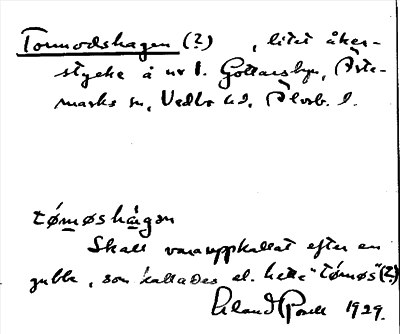 Tormodshagen (?) , litet åker-
stycke å nr 1. Gottarsbyn, Ärte-
marks sn, Vedbo hd, Älvsb. l.
tǿmøshàgən
Skall vara uppkallat efter en
gubbe, som kallades el. hette "tǿmøs" (?)
Erland 1929.